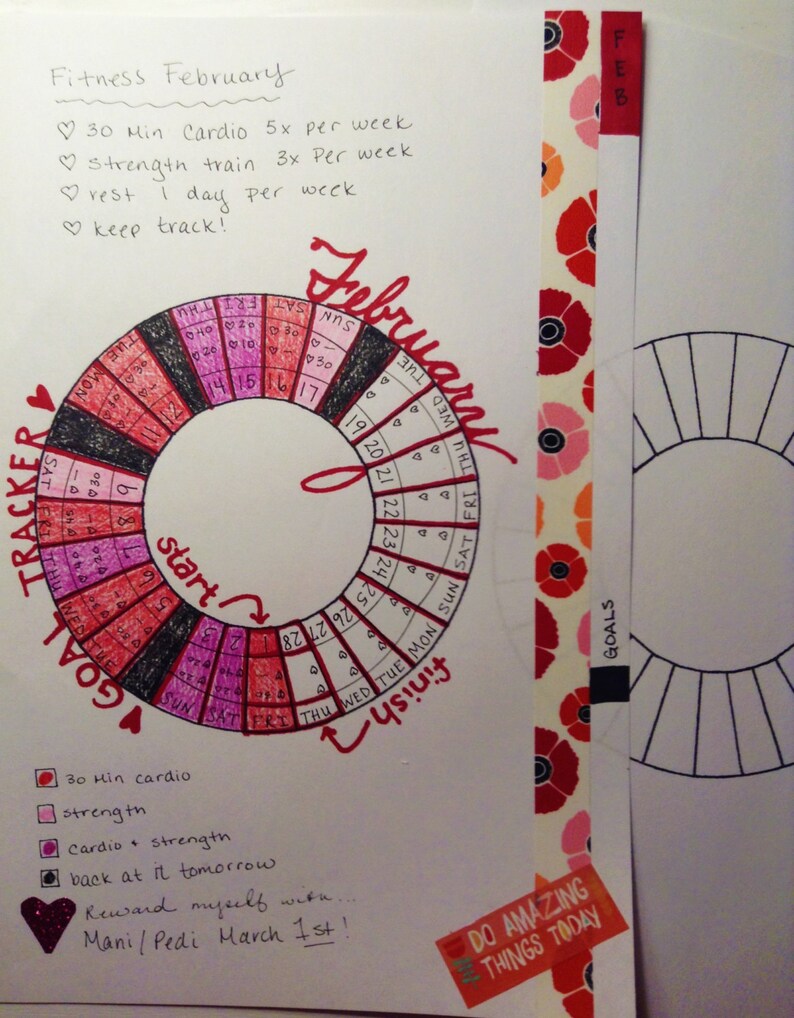 Fitness February
♡ 30 Min Cardio 5x per week
♡ strength train 3x Per week
♡ rest 1 day per week
♡ keep track!
February
GOAL TRACKER
start
FRI 1
SAT 2
SUN 3
TUE 5
WED 6
THU 7
FRI 8
SAT 9
MON 11
TUE 12
THU 14
FRI 15
SAT 16
SUN 17
TUE 19
WED 20
THU 21
FRI 22
SAT 23
SUN 24
MON 25
TUE 26
WED 27
THU 28
finish
30 Min cardio
strength
cardio + strength
back at it tomorrow
Reward myself with...
Mani/Pedi March 1st!
FEB
GOALS
DO AMAZING
THINGS TODAY